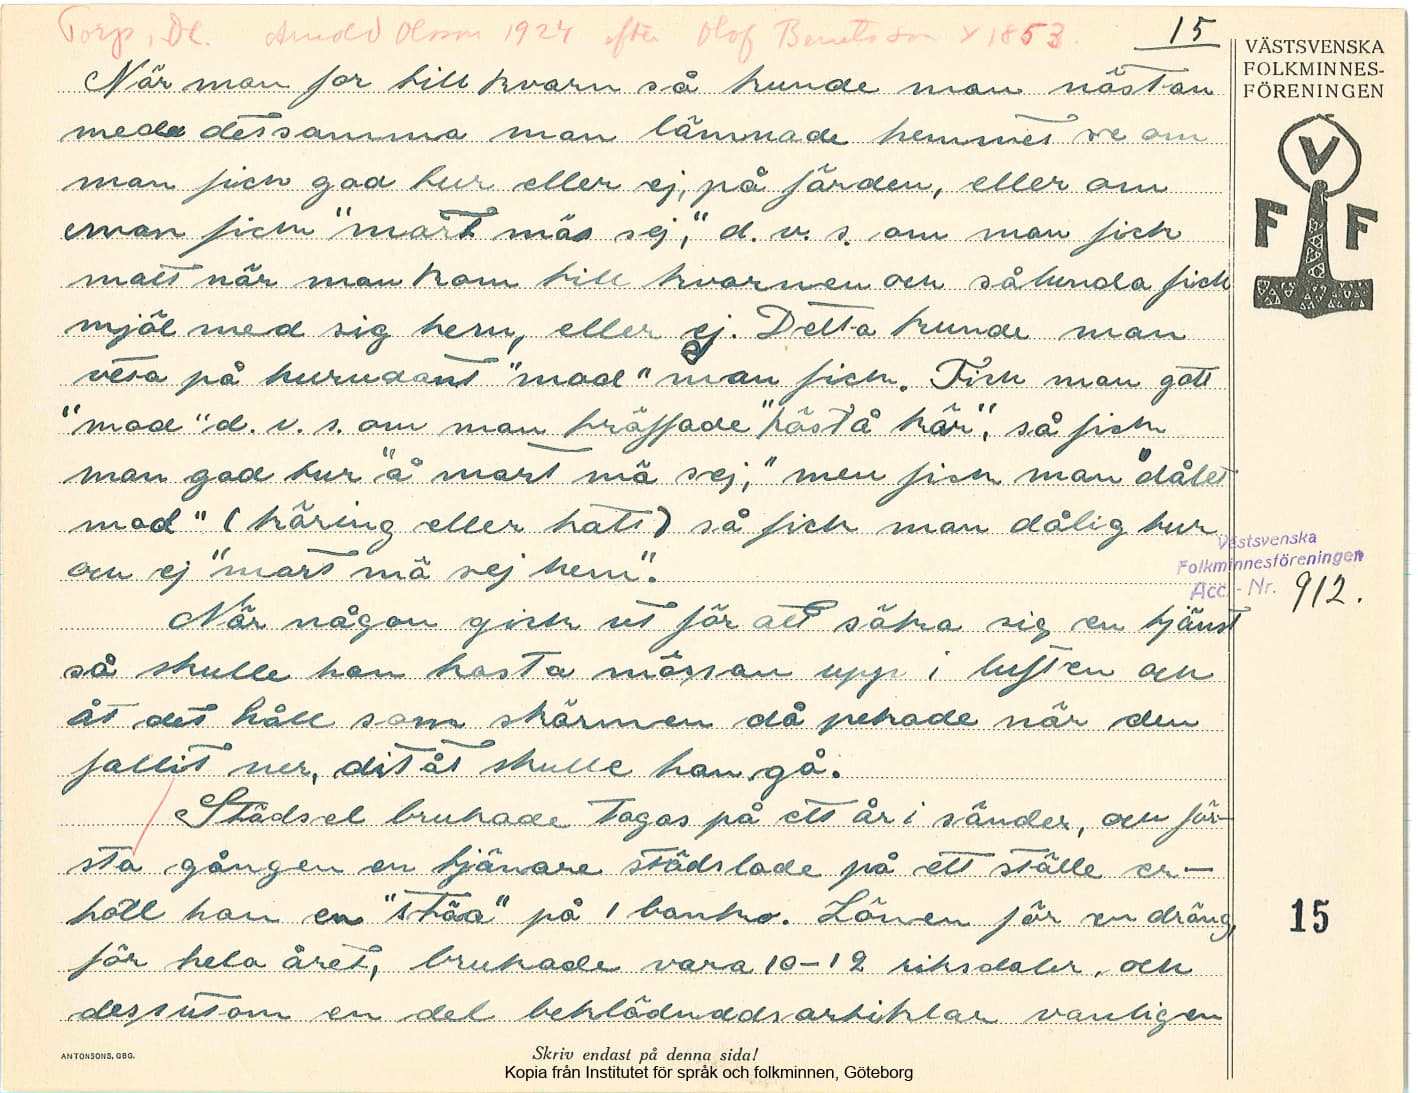 Torp, Dl. Arnold Olsson 1924 efter Olof Berntsson * 1853.
15
VÄSTSVENSKA
FOLKMINNES-
FÖRENINGEN
V
F F
När man for till kvarn så kunde man nästan
med detsamma man lämnade hemmet se om
man fick god tur eller ej, på färden, eller om
man fick "mart mäs sej", d. v. s. om man fick
malt när man kom till kvarnen och sålunda fick
mjöl med sig hem, eller ej. Detta kunde man
veta på hurudant "mod" man fick. Fick man gott
"mod" d. v. s. om man träffade "häst å kär", så fick
man god tur "å mart mä sej", men fick man "dålet
mod" (käring eller katt) så fick man dålig tur
och ej "mart mä sej hem".
När någon gick ut för att söka sig en tjänst
så skulle han kasta mössan upp i luften och
åt det håll som skärmen då pekade när den
fallit ner, ditåt skulle han gå.
Städsel brukade tagas på ett år i sänder, och för-
sta gången en tjänare städslade på ett ställe er-
höll han en "stäa" på 1 banko. Lönen för en dräng,
för hela året, brukade vara 10-12 riksdaler, och
dessutom en del beklädnadsartiklar vanligen
Västsvenska
Folkminnesföreningen
Acc. - Nr. 912.
15
ANTONSONS, GBG.
Skriv endast på denna sida!
Kopia från Institutet för språk och folkminnen, Göteborg